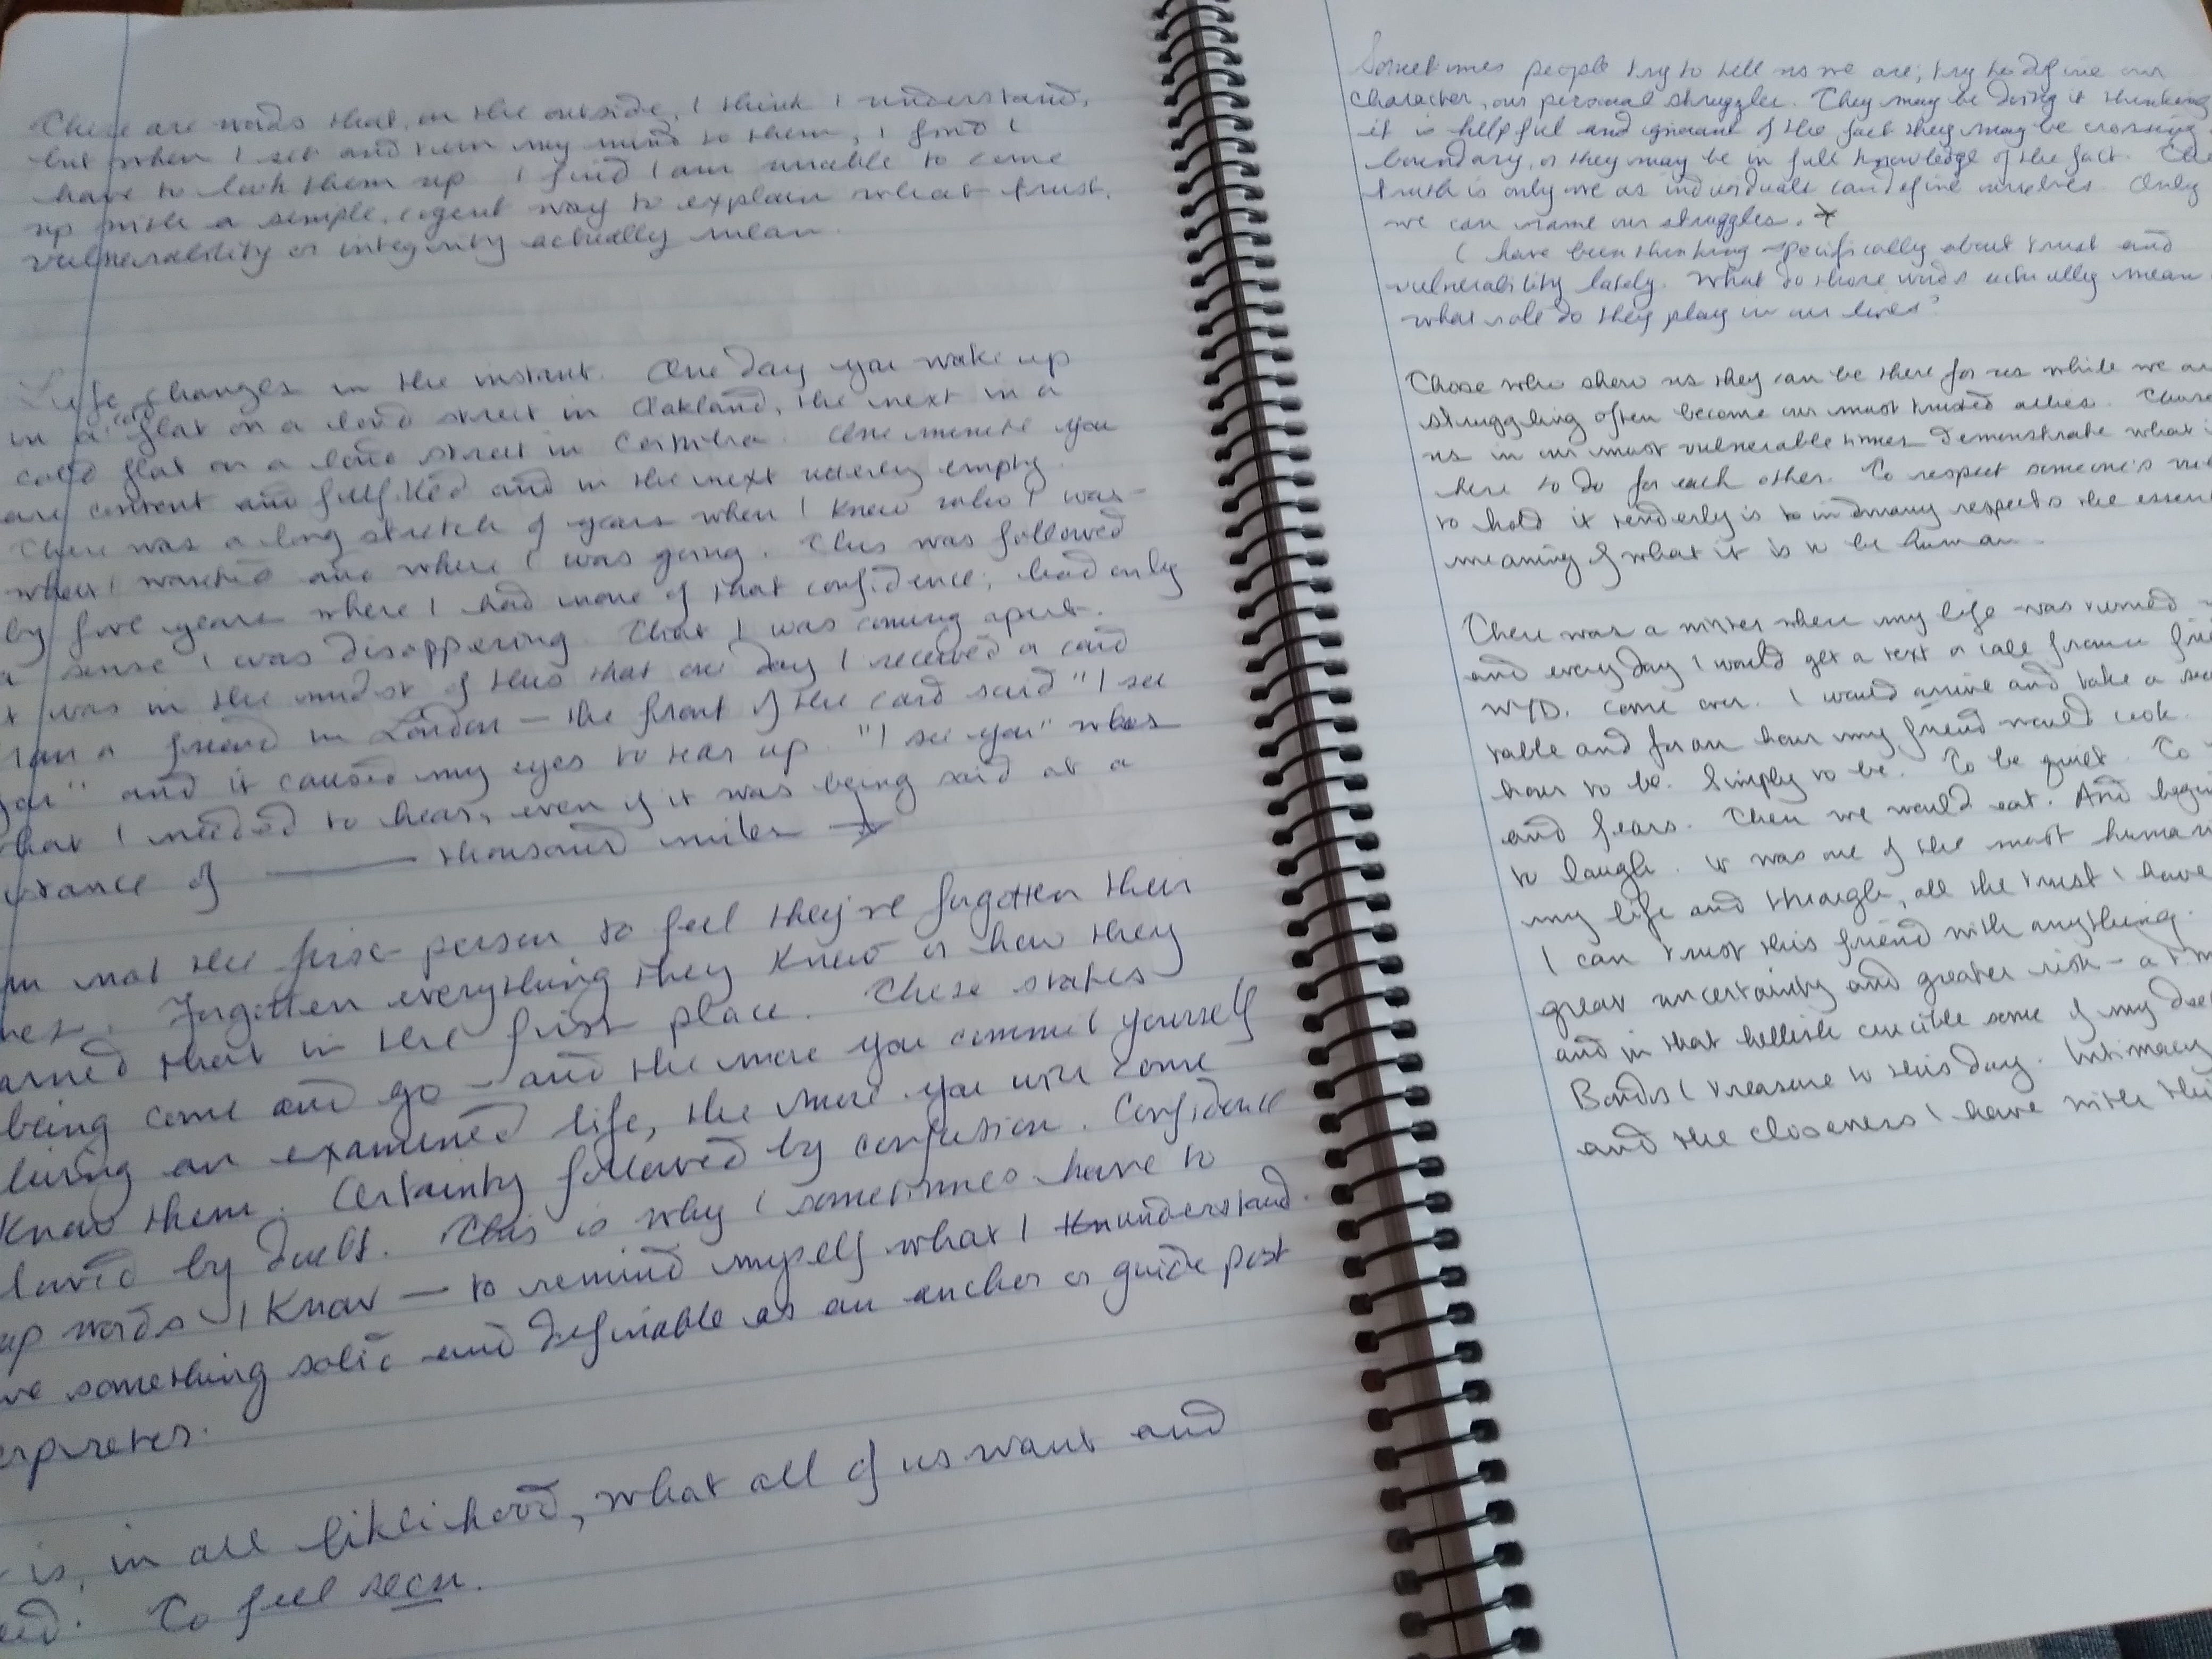 There are words that, on the outside, I think I understand,
but when I sit and turn my mind to them, I find I
have to look them up. I find I am unable to come
up with a simple, cogent way to explain what trust,
vulnerability or integrity actually mean.
Life changes in the instant. One day you wake up
in a cold flat on a loud street in Oakland, the next in a
cold flat on a loud street in Coimbra. One minute you
are content and fulfilled and in the next utterly empty.
There was a long stretch of years when I knew who I was -
what I wanted and where I was going. This was followed
by five years where I had none of that confidence; had only
a sense I was disappering. That I was coming apart.
t was in the midst of this that one day I received a card
from a friend in London — the front of the card said "I see
you" and it caused my eyes to tear up. "I see you" was
what I needed to hear, even if it was being said at a
istance of ——— thousand miles
am not the first person to feel they're forgotten their
nes. Forgotten everything they knew or how they
arned that in the first place. These states
being come and go — and the more you commit yourself
living an examined life, the more you will come
know them. Certainty followed by confusion. Confidence
lowed by doubt. This is why I sometimes have to
up words I know — to remind myself what I understand.
ve something solid and definable as an anchor or guide post
erpreter.
is, in all liklihood, what all of us want and
eed. To feel seen.
Sometimes people try to tell us we are; try to define our
character, our personal struggles. They may be doing it thinking
it is helpful and ignorant of the fact they may be crossing
boundary, or they may be in full knowledge of the fact. The
truth is only we as individuals can define ourselves. Only
we can name our struggles. *
I have been thinking specifically about trust and
vulnerability lately. What do those words actually mean
what role do they play in our lives?
Those who show us they can be there for us while we are
struggling often become our most trusted allies. Those
us in our most vulnerable times demonstrate what i
here to do for each other. To respect someone's vul
to hold it tenderly is to in many respects the essent
meaning of what it is to be human.
There was a winter when my life was ruined
and every day I would get a text or call from a frie
WYD. Come over. I would arrive and take a sea
table and for an hour my friend would cook.
hour to be. Simply to be. To be quiet. To
and fears. Then we would eat. And begin
to laugh. It was one of the most human
my life and through, all the trust I have
I can trust this friend with anything.
great uncertainty and greater risk - a tim
and in that hellish crucible some of my dee
Bonds I treasure to this day. Intimacy
and the closeness I have with this